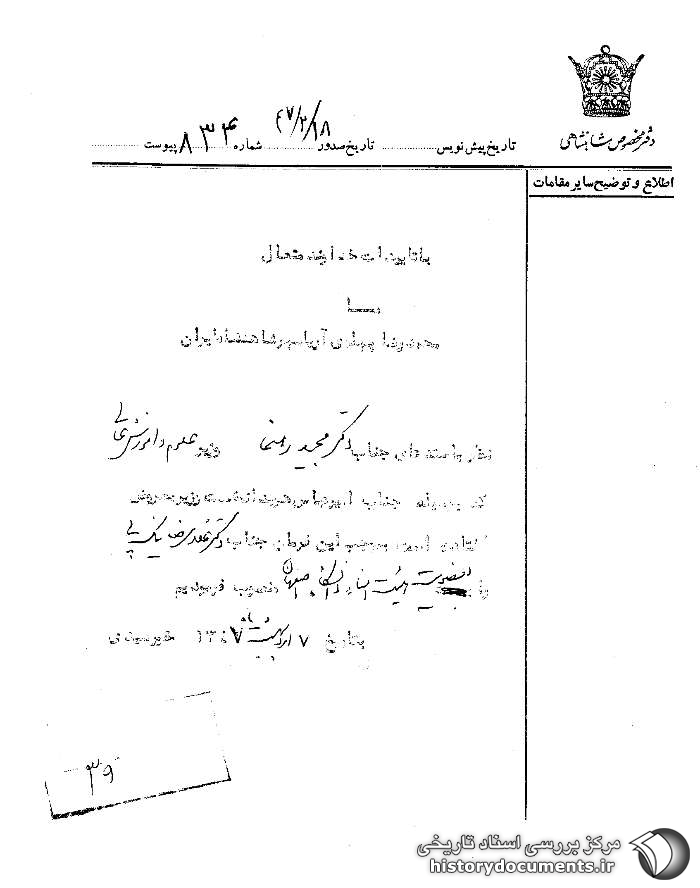 دفتر مخصوص شاهنشاهی
تاریخ پیش نویس تاریخ صدور ۴۷/۲/۱۸ شماره ۸۳۴ پیوست
اطلاع و توضیح سایر مقامات
با تاییدات خداوند متعال
ما
محمدرضا پهلوی آریامهر شاهنشاه ایران
نظر باستدعای جناب دکتر مجید رهنما وزیر علوم و آموزش عالی
که بوسیله جناب امیرعباس هویدا نخست وزیر بعرض
رسیده است بموجب این فرمان جناب دکتر
را بعضویت هیئت امناء دانشگاه اصفهان منصوب فرمودیم
بتاریخ ۷ اردیبهشت ماه ۱۳۴۷ خورشیدی
۳۹
مرکز بررسی اسناد تاریخی
historydocuments.ir